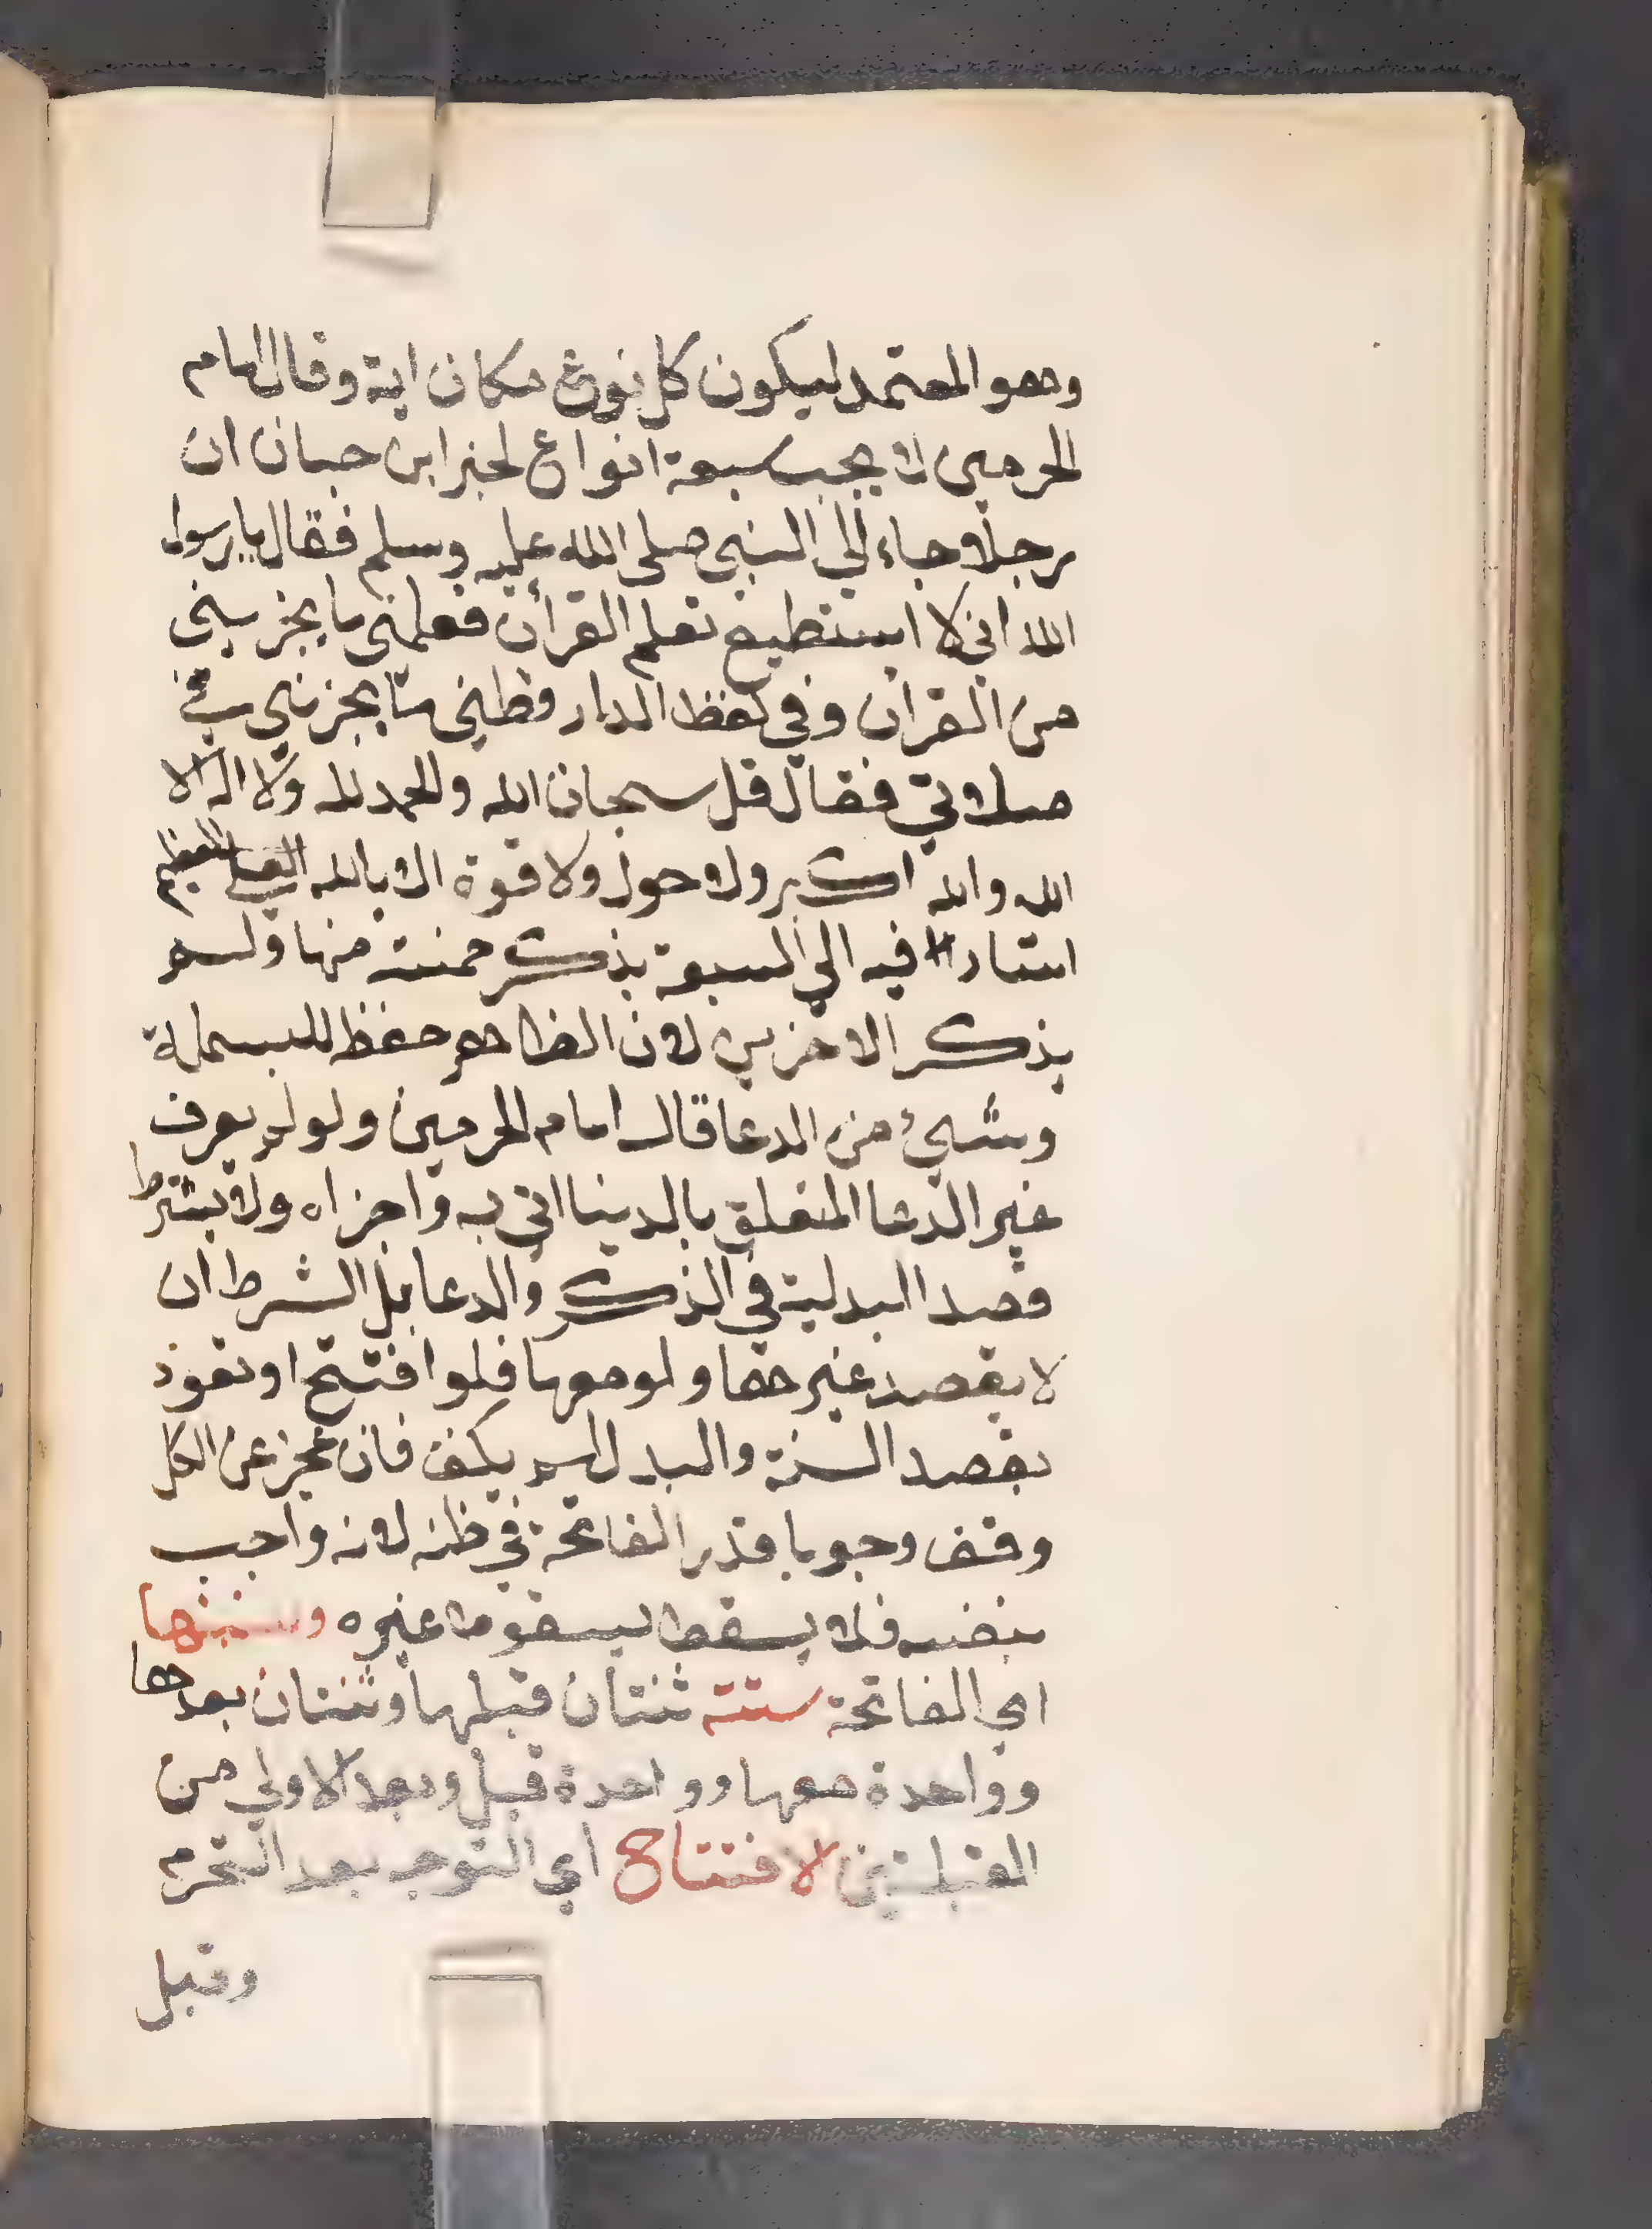 وهو المعتمد ليكون كل نوع مكان اية وقال امام
الحرمين لا يجب سبعة انواع لخبر ابن حبان ان
رجلا جاء الي النبي صلى الله عليه وسلم فقال يا رسول
الله اني لا استطيع تعلم القرأن فعلمني ما يجزيني
من القرأن وفي لفظ الدار قطني ما يجزئني في
صلاتي فقال قل سبحان الله والحمد لله ولا اله الا
الله والله اكبر ولا حول ولا قوة الا بالله العلي العظيم
اشار فيه الي السبعة بذكر خمسة منها ولم
يذكر الاخرين لان الظاهر حفظ للبسملة
وشيئ من الدعا قال امام الحرمين ولو لم يعرف
غير الدعا المتعلق بالدنيا اتي به واجزاه ولا يشترط
قصد البدلية في الذكر والدعا بل الشرط ان
لا يقصد غيرها ولو معها فلو افتتح او تعوذ
بقصد السنة والبدل لم يكف فان عجز عن الكل
وقف وجوبا قدر الفاتحة في ظنه لانه واجب
بنفسه فلا يسقط بسقوط غيره وسننها
اي الفاتحة ستة ثنتان قبلها وثنتان بعدها
وواحدة معها وواحدة قبل وبعد الاولي من
القبلتين الافتتاح اي التوجه بعد التحرم
وقبل